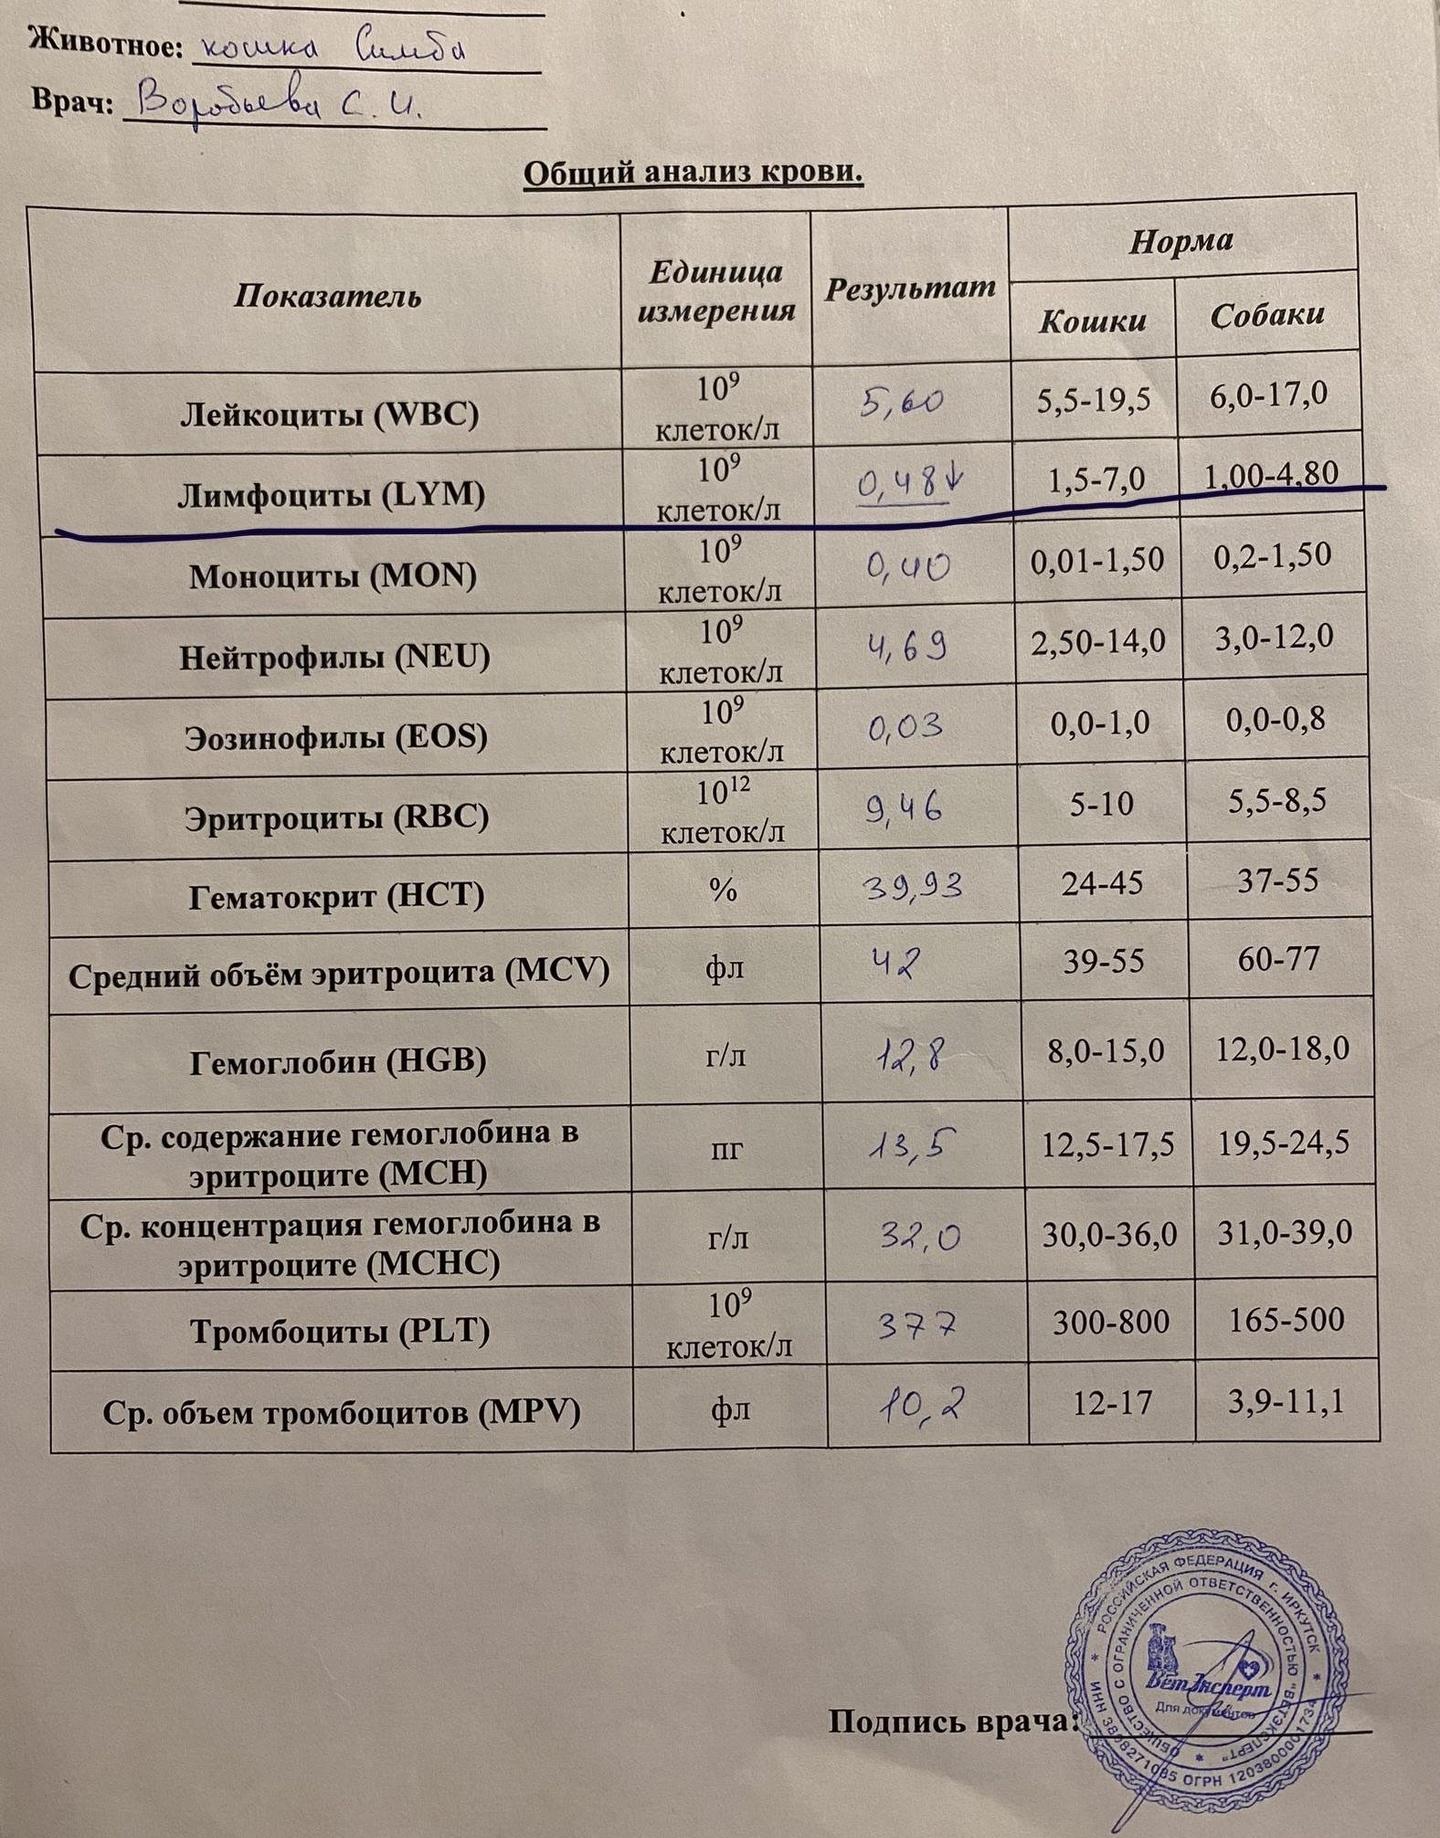 Животное: кошка Симба
Врач: Воробьева С. И.
Общий анализ крови.
Показатель Единица измерения Результат Норма
Кошки Собаки
Лейкоциты (WBC) 10⁹ клеток/л 5,60 5,5-19,5 6,0-17,0
Лимфоциты (LYM) 10⁹ клеток/л 0,48↓ 1,5-7,0 1,00-4,80
Моноциты (MON) 10⁹ клеток/л 0,40 0,01-1,50 0,2-1,50
Нейтрофилы (NEU) 10⁹ клеток/л 4,69 2,50-14,0 3,0-12,0
Эозинофилы (EOS) 10⁹ клеток/л 0,03 0,0-1,0 0,0-0,8
Эритроциты (RBC) 10¹² клеток/л 9,46 5-10 5,5-8,5
Гематокрит (HCT) % 39,93 24-45 37-55
Средний объём эритроцита (MCV) фл 42 39-55 60-77
Гемоглобин (HGB) г/л 12,8 8,0-15,0 12,0-18,0
Ср. содержание гемоглобина в эритроците (MCH) пг 13,5 12,5-17,5 19,5-24,5
Ср. концентрация гемоглобина в эритроците (MCHC) г/л 32,0 30,0-36,0 31,0-39,0
Тромбоциты (PLT) 10⁹ клеток/л 377 300-800 165-500
Ср. объем тромбоцитов (MPV) фл 10,2 12-17 3,9-11,1
РОССИЙСКАЯ ФЕДЕРАЦИЯ г. ИРКУТСК
ОБЩЕСТВО С ОГРАНИЧЕННОЙ ОТВЕТСТВЕННОСТЬЮ "ВЕТЭКСПЕРТ"
ВетЭксперт
Для документов
ИНН ОГРН
Подпись врача: